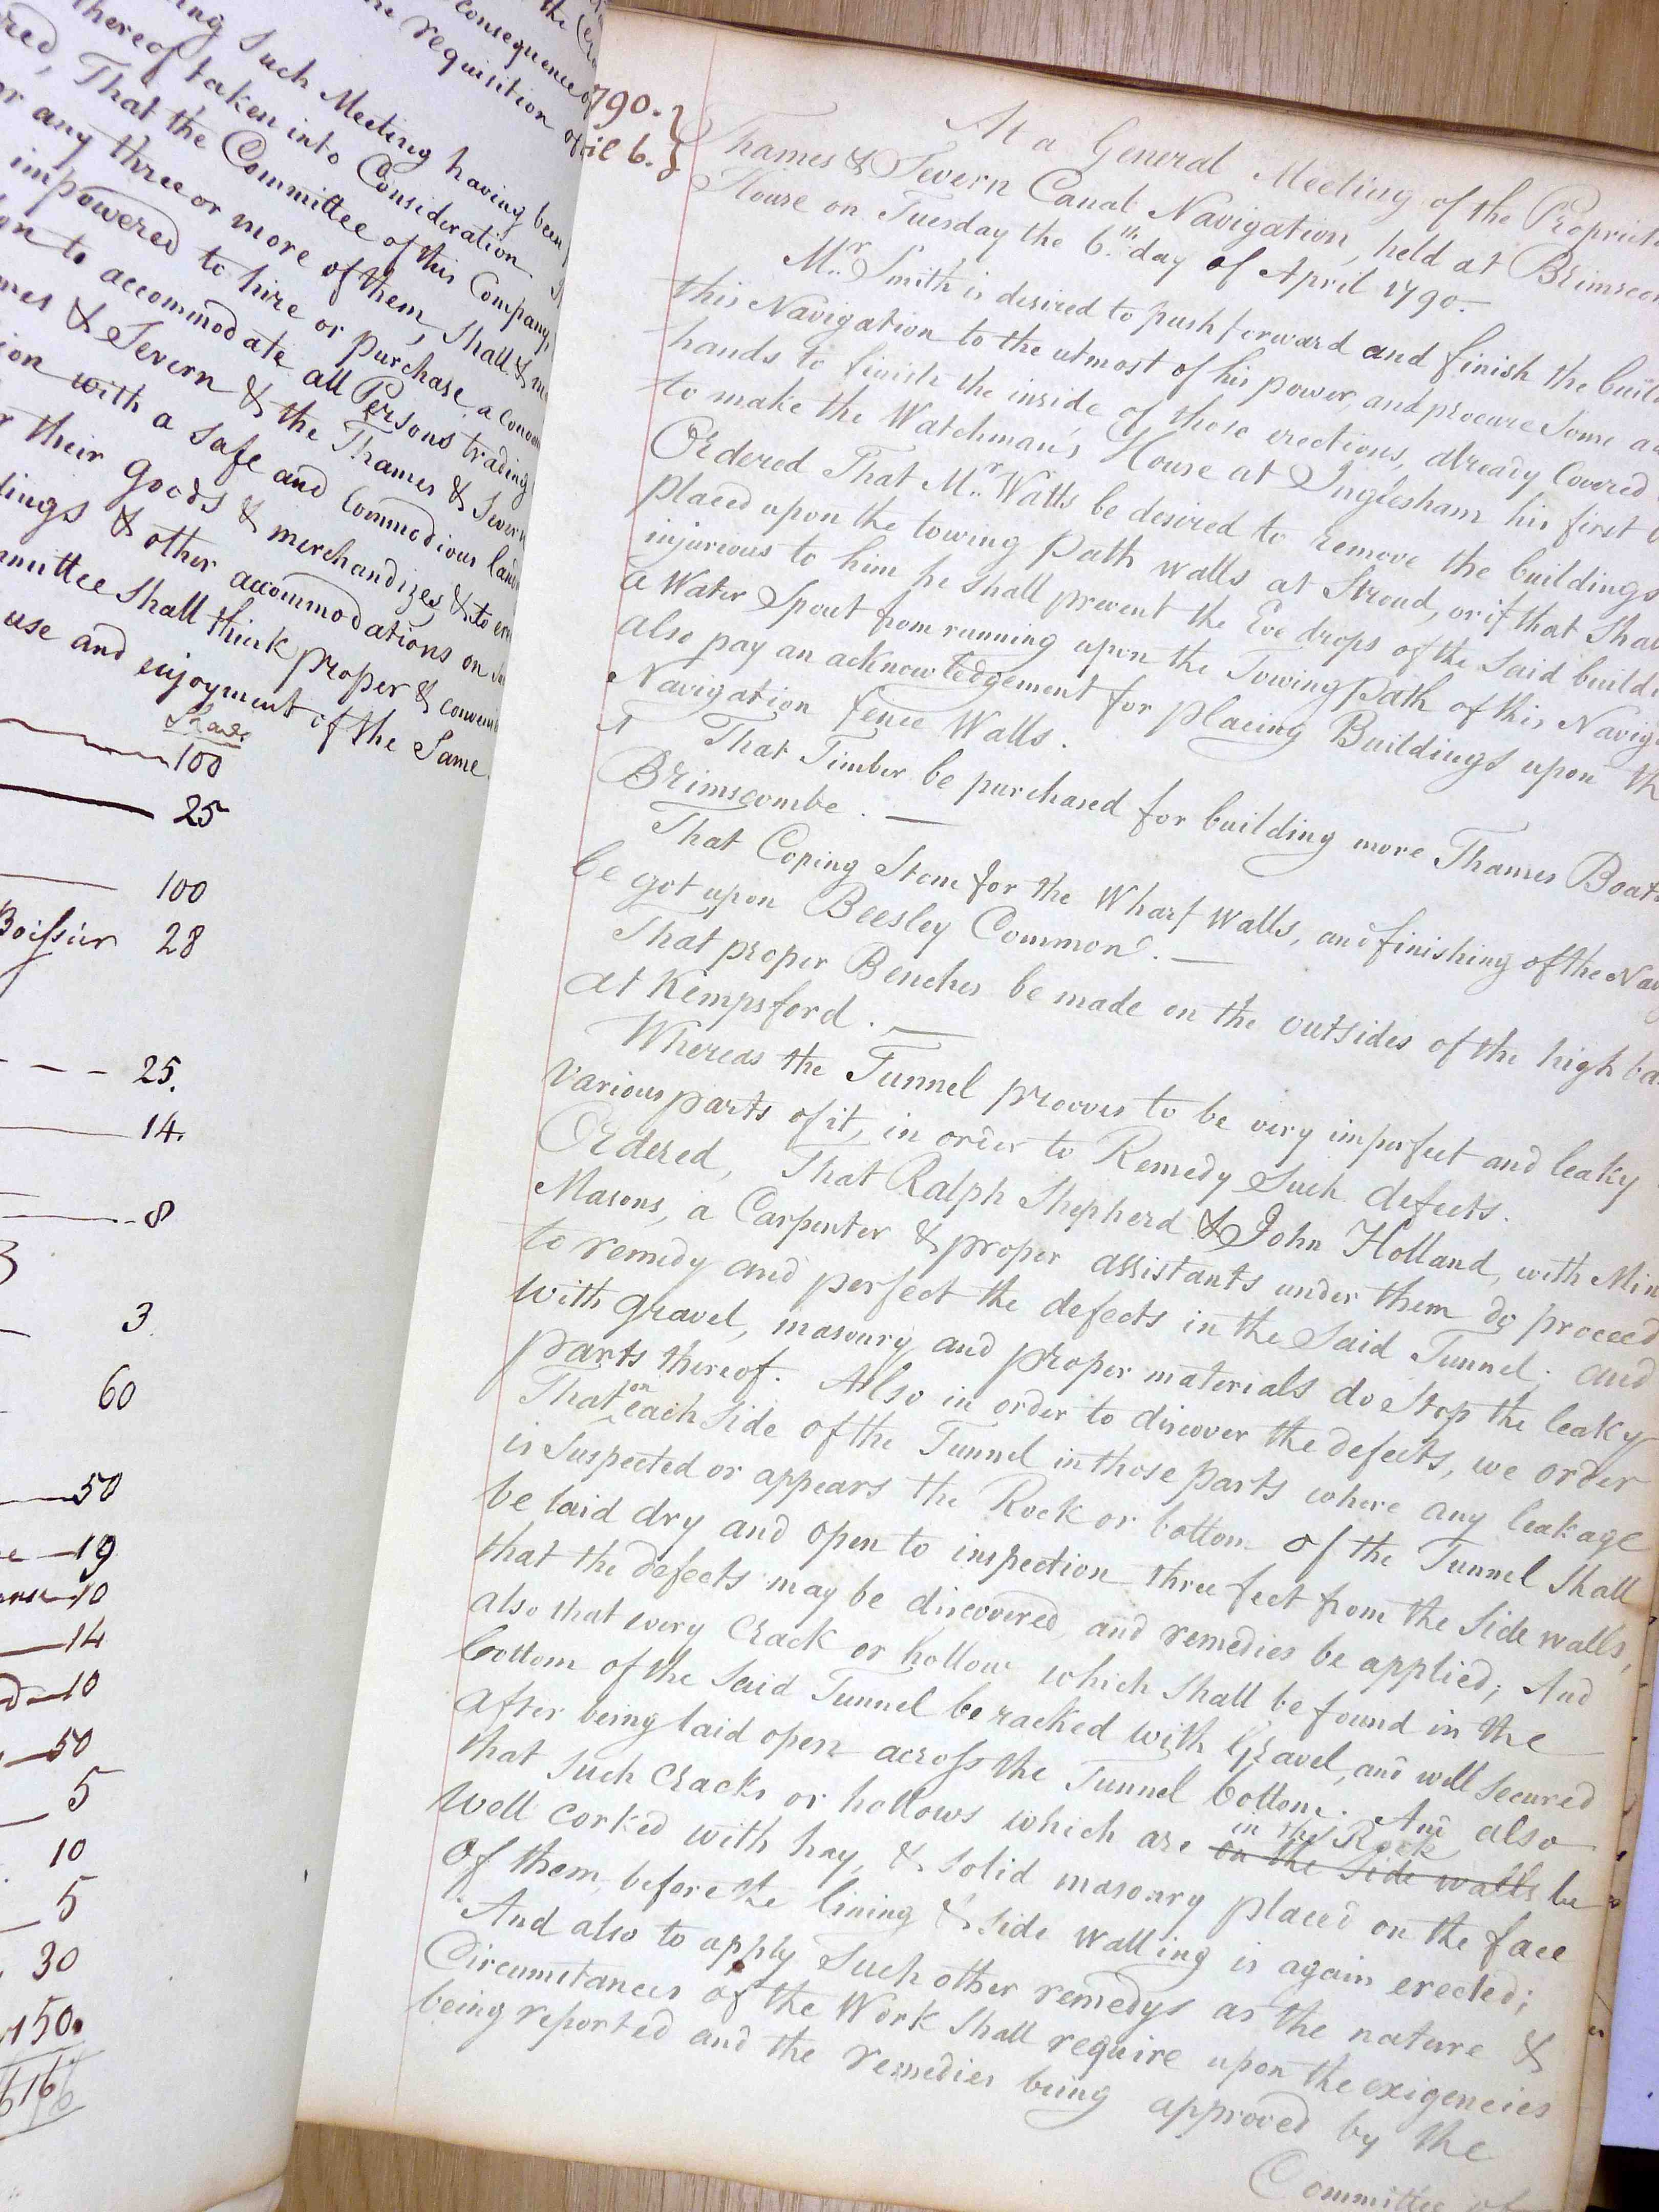 the
consequence of
the requisition of
ing Such Meeting having been
thereof taken into Consideration.
red, That the Committee of this Company,
or any three or more of them, Shall &
impowered to hire or purchase a
to accommodate all Persons trading
mes & Severn & the Thames & Severn
ion with a Safe and Commodious
r their Goods & merchandizes, & to
dings & other accommodations on
mmittee Shall think proper &
use and enjoyment of the Same.
Shares
100
25
100
Boissier 28
25.
14.
8
3
60
50
19
10
14
10
50
5
10
5
30
150.
616
790.
il 6.
At a General Meeting of the Propriet
Thames & Severn Canal Navigation, held at Brimscom
House on Tuesday the 6.th day of April 1790.
Mr. Smith is desired to push forward and finish the build
this Navigation to the utmost of his power, and procure Some
hands to finish the inside of those erections, already Covered
to make the Watchman's House at Inglesham his first
Ordered That Mr. Watts be desired to remove the buildings
placed upon the towing path walls at Stroud, or if that Shall
injureous to him he Shall prevent the Eve drops of the Said build
a Water Spout from running upon the Towing path of this Navig
also pay an acknowledgement for placing Buildings upon th
Navigation fence Walls.
That Timber be purchased for building more Thames Boats
Brimscombe. —
That Coping Stone for the Wharf Walls, and finishing of the Nav
be got upon Beesley Common. —
That proper Benches be made on the outsides of the high ba
at Kempsford. —
Whereas the Tunnel prooves to be very imperfect and leaky
various parts of it, in order to Remedy Such defects.
Ordered, That Ralph Shepherd & John Holland, with Min
Masons, a Carpenter & proper assistants under them do proceed
to remedy and perfect the defects in the Said Tunnel. and
with gravel, masonry and proper materials do Stop the leaky
parts thereof. Also in order to discover the defects, we order
That on each Side of the Tunnel in those parts where any leakage
is Suspected or appears the Rock or bottom of the Tunnel Shall
be laid dry and open to inspection three feet from the Side walls,
that the defects may be discovered and remedies be applied; And
also that every Crack or hollow which Shall be found in the
bottom of the Said Tunnel be racked with Gravel, and well Secured
after being laid open across the Tunnel bottom. And also
that Such Cracks or hollows which are in the Rock on the Side walls be
well corked with hay, & Solid masonry placed on the face
of them before the lining & Side walling is again erected;
And also to apply Such other remedys as the nature &
Circumstances of the Work Shall require upon the exigencies
being reported and the remedies being approved by the
Committee of